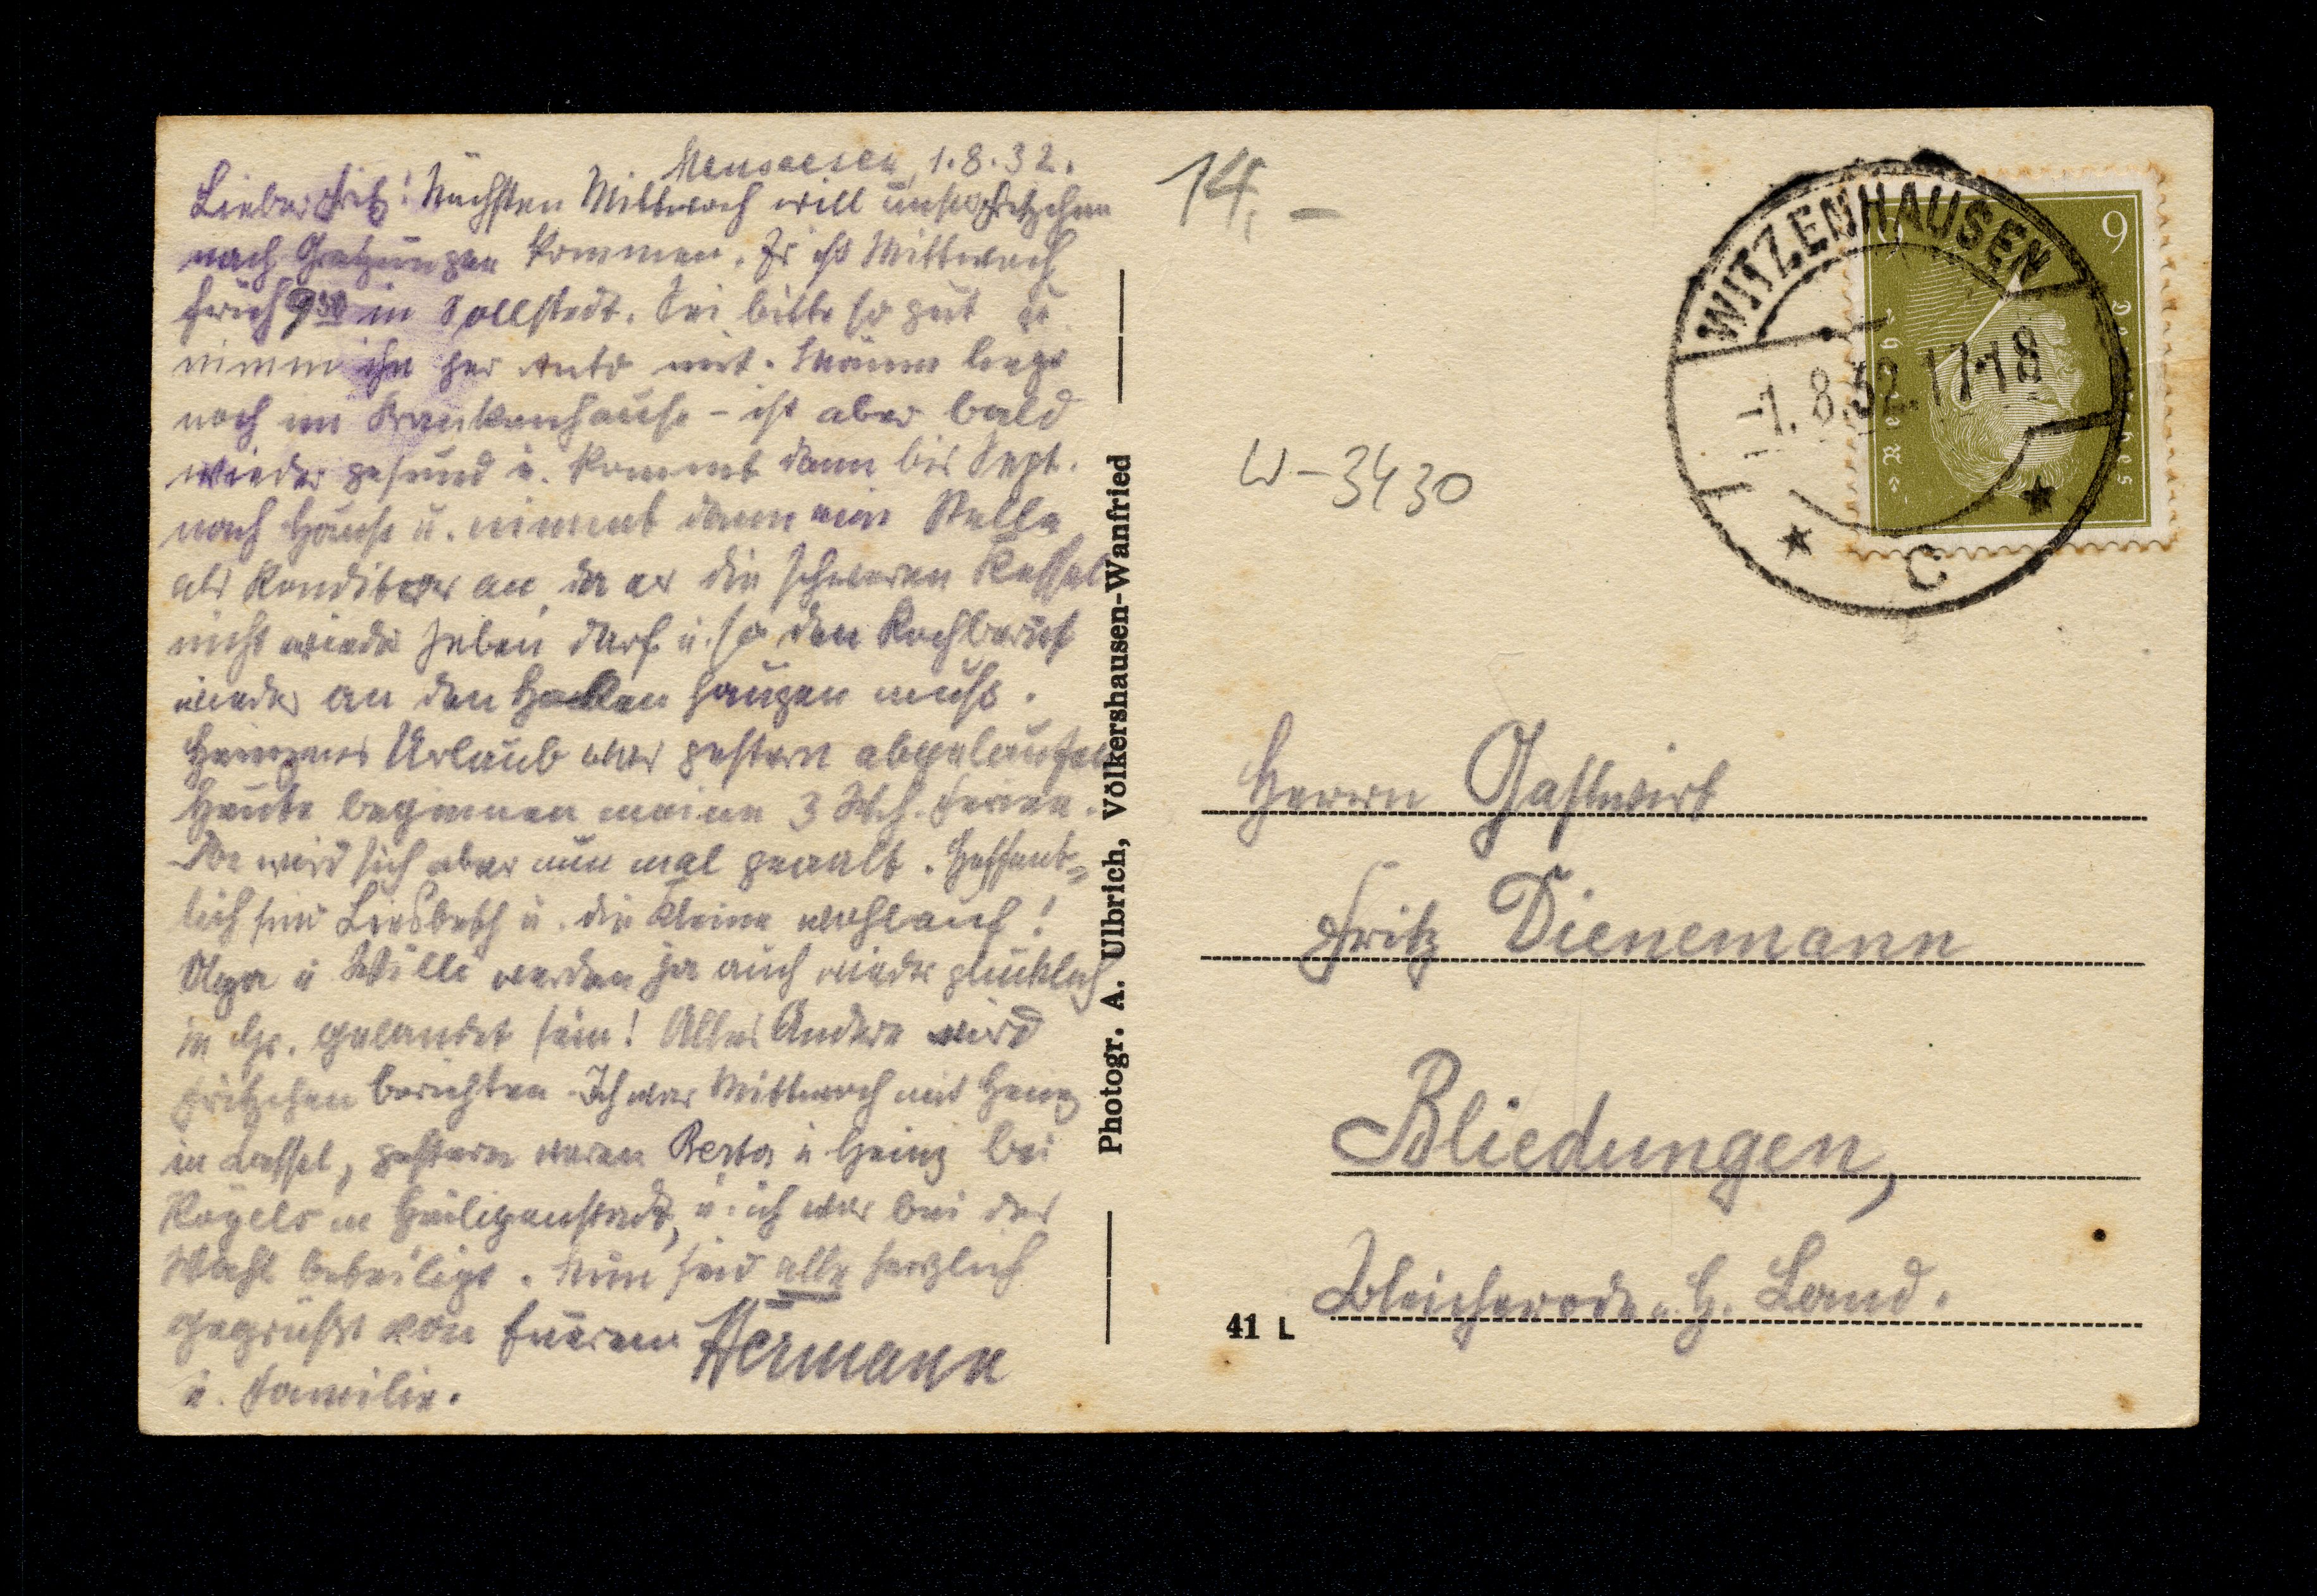 1.8.32.
Lieber Fritz! Nächsten Mittwoch will unser Fritzchen
nach kommen. Er ist Mittwoch
früh 9 30 in Sollstedt. Sei bitte so gut u.
nimm ihn per Auto mit. liegt
noch im Krankenhause - ist aber bald
wieder gesund u. kommt dann bis Sept.
nach Hause u. nimmt dann eine Stelle
als Konditor an, da er die schweren Kessel
nicht wieder heben darf u. so den Kochberuf
wieder an den Haken hängen muß.
Heinzens Urlaub war gestern abgelaufen
Heute beginnen meine 3 Wch. Ferien.
Da wird sich aber nun mal geaalt. Hoffent-
lich sind Liesbeth u. die Kleine wohlauf!
Olga u Willi werden ja auch wieder glücklich
in gelandet sein! Alles Andere wird
Fritzchen berichten. Ich war Mittwoch mit Heinz
in Cassel, gestern waren Berta u Heinz bei
Kögels in Heiligenstadt, u. ich war bei der
Wahl beteiligt. Nun seid alle herzlich
gegrüßt von Eurem Hermann
u. Familie.
Photogr. A. Ulbrich, Völkershausen-Wanfried
14,-
W-3430
WITZENHAUSEN
-1.8.32.17-18
C
6
Deutsches
Reich
Herrn Gastwirt
Fritz Dienemann
Bliedungen,
Bleicherode a. H. Land.
41 L